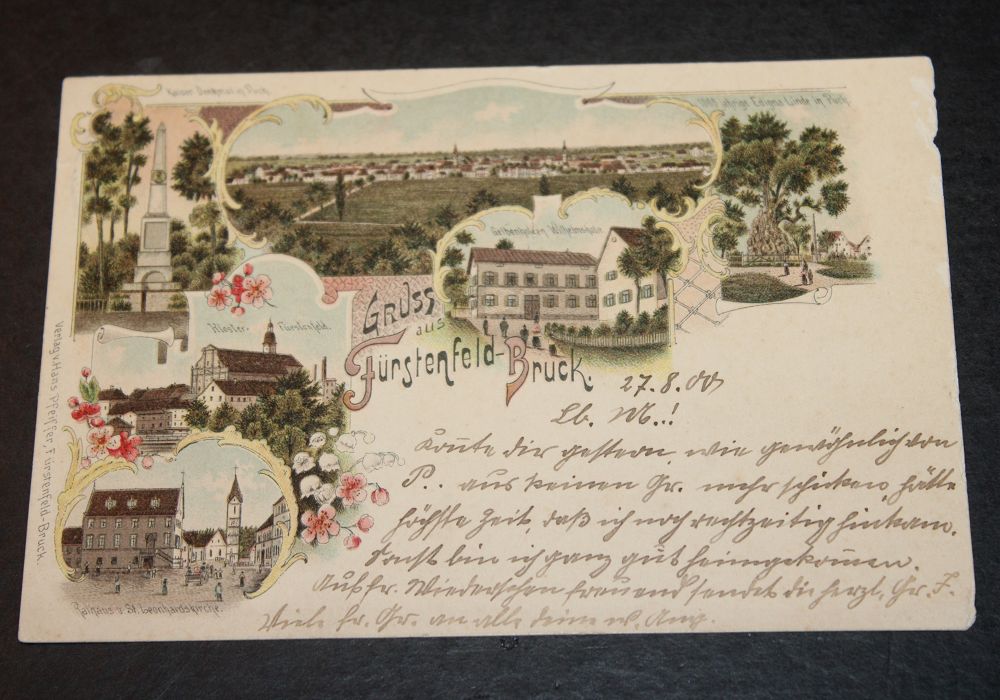 Kaiser Denkmal in Puch.
1000 jährige Edigna Linde in Puch
Wilhelmshöhe
Kloster- Fürstenfeld.
Gruss
aus
Fürstenfeld-Bruck.
Rathaus u St. Leonhardskirche.
Verlag v. Hans Pfeiffer, Fürstenfeld-Bruck.
27.8.00
Lb. M.!
Konnte dir gestern, wie gewöhnlich von
P.. aus keinen Gr. mehr schicken, hätte
höchste Zeit, daß ich noch rechtzeitig hinkam.
Sonst bin ich ganz gut heimgekommen.
Auf fr. Wiedersehen freuend sendet dir herzl. Gr. F.
Viele fr. Gr. an alle deine w. Ang.